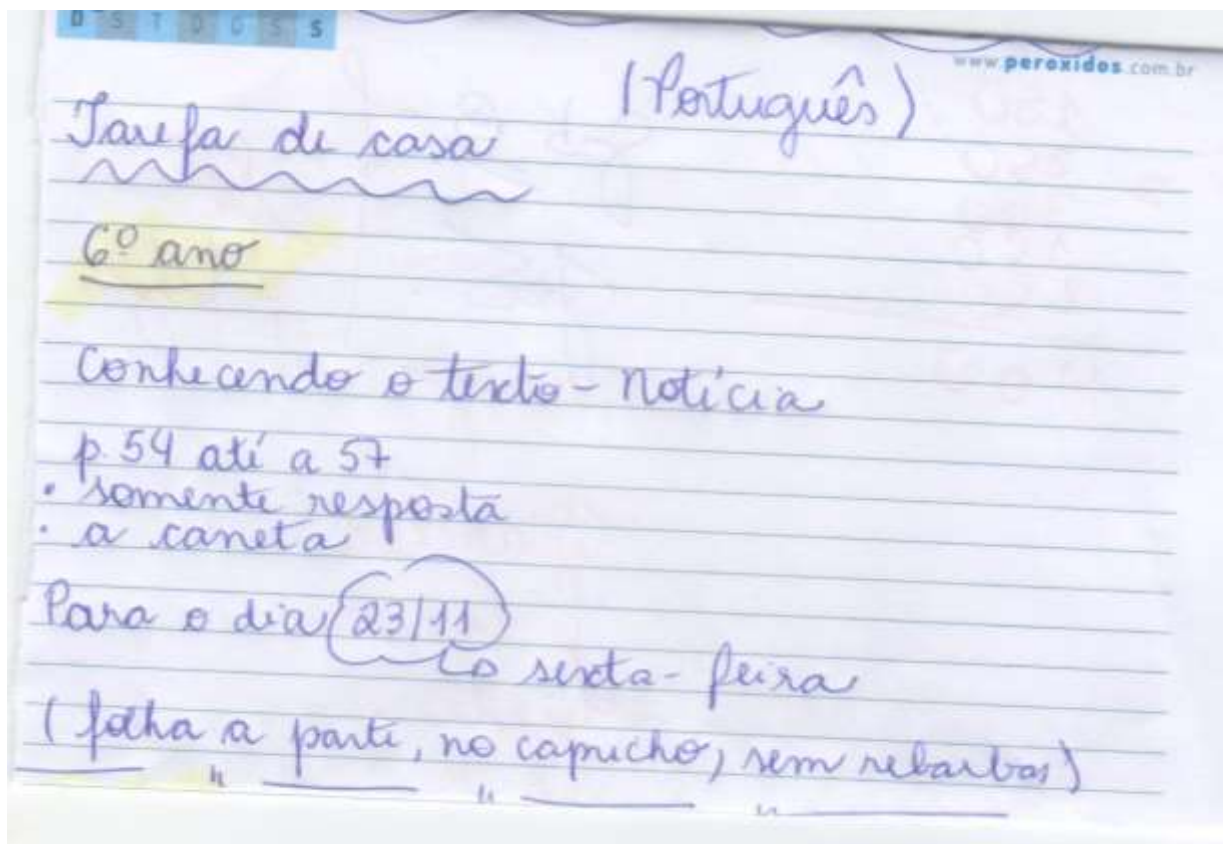 D S T Q Q S S
www.peroxidos.com.br
(Português)
Tarefa de casa
6º ano
Conhecendo o texto - Notícia
p. 54 até a 57
• somente resposta
• a caneta
Para o dia 23/11
↳ sexta-feira
(folha a parte, no capricho, sem rebarbas)